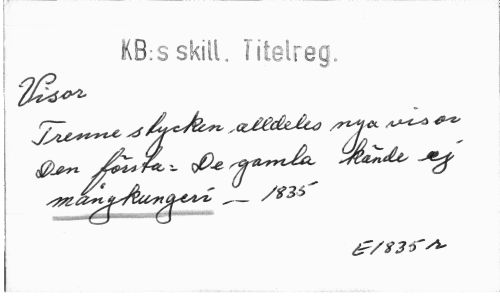 KB:s skill. Titelreg.
Visor
Trenne stycken alldeles nya visor
Den första: De gamla kände ej
mångkungeri — 1835
E1835 r